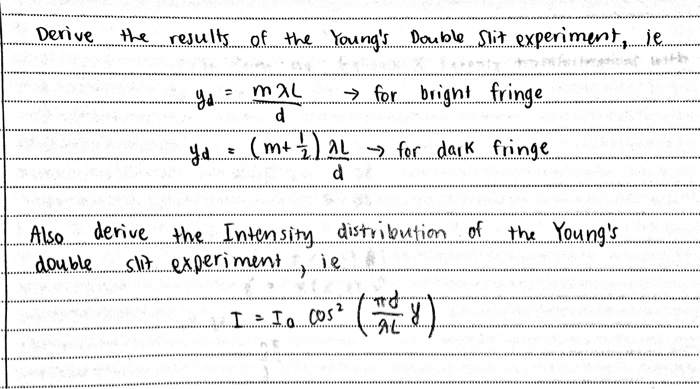 Derive the results of the Young's Double Slit experiment, ie
yd = mλL/d → for bright fringe
yd = (m+1/2) λL/d → for dark fringe
Also derive the Intensity distribution of the Young's
double slit experiment, ie
I = I0 cos² (πd/λL y)